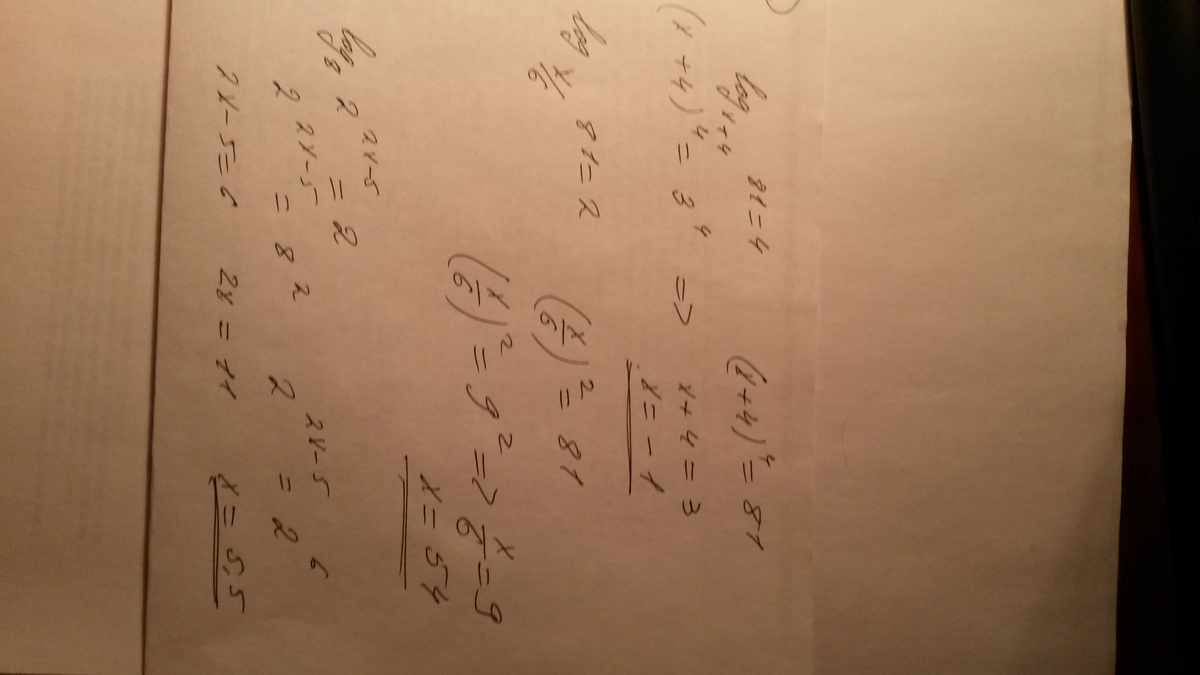 )
log_{x+4} 81 = 4 (x+4)^4 = 81
(x+4)^4 = 3^4 => x+4 = 3
x = -1
log_{x/6} 81 = 2 (x/6)^2 = 81
(x/6)^2 = 9^2 => x/6 = 9
x = 54
log_8 2^{2x-5} = 2
2^{2x-5} = 8^2 2^{2x-5} = 2^6
2x-5 = 6 2x = 11 x = 5,5